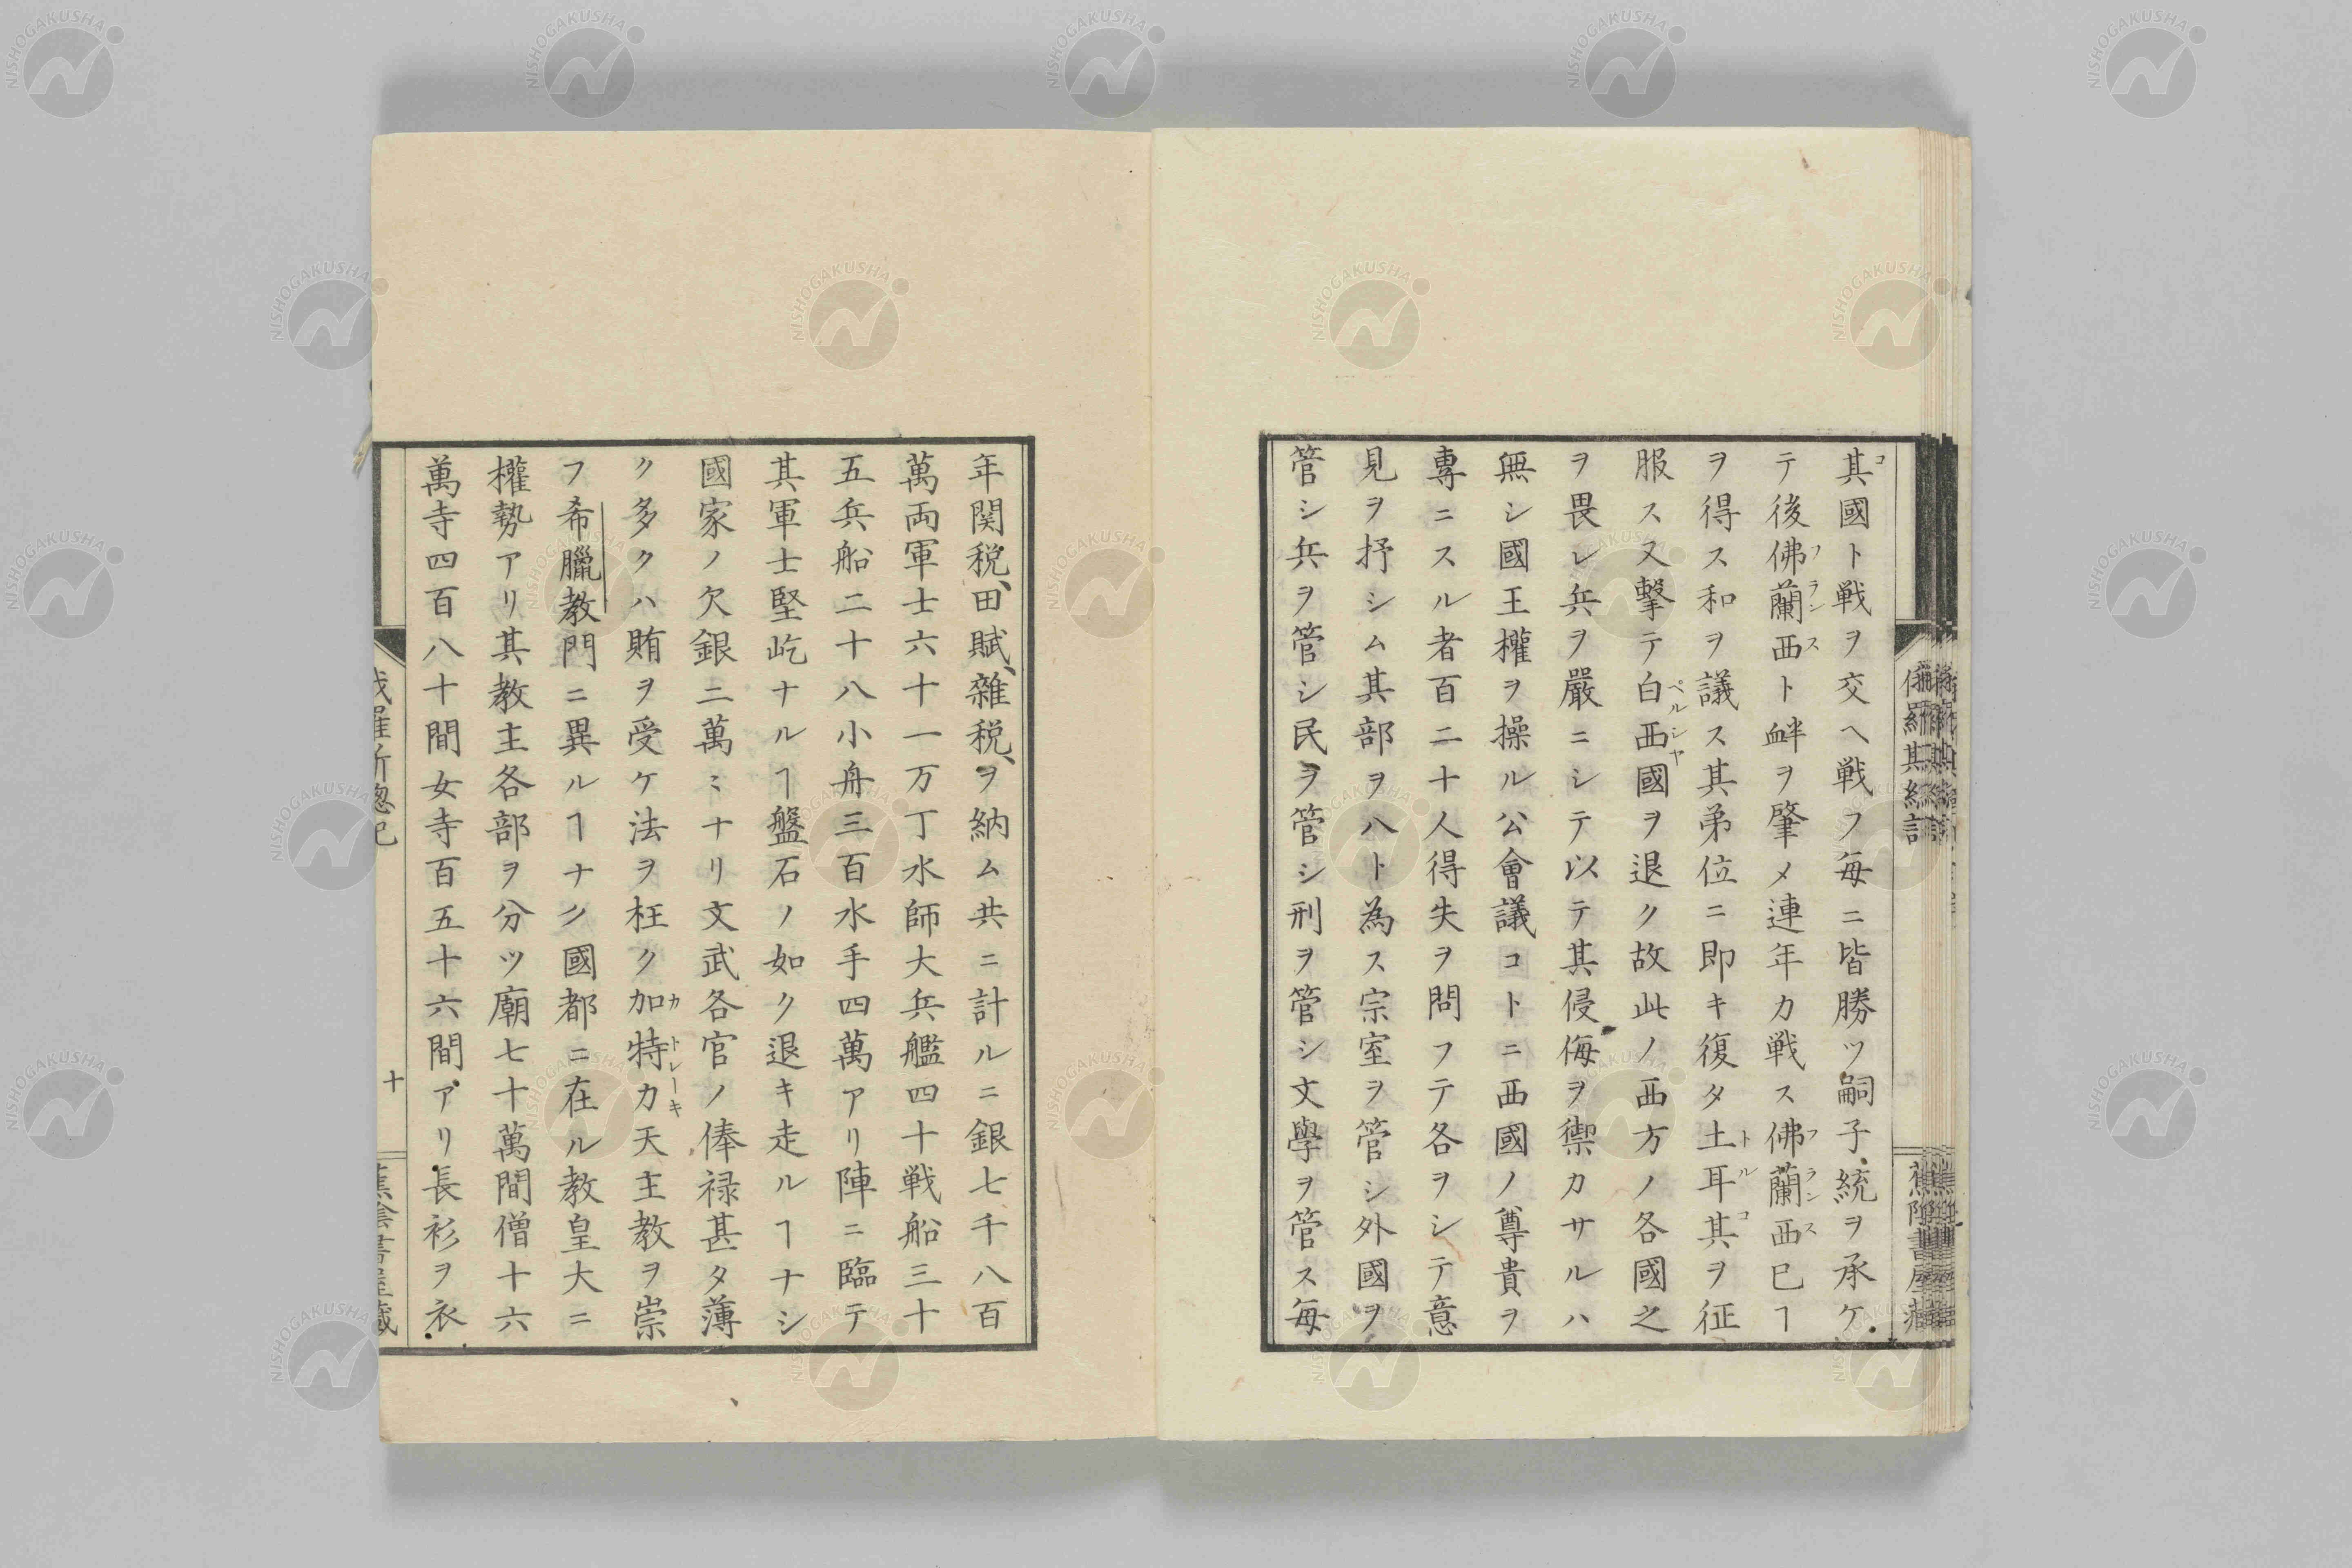 其國ト戦ヲ交ヘ戦フ毎ニ皆勝ツ嗣子統ヲ承ケ
テ後佛蘭西ト衅ヲ肇メ連年カ戦ス佛蘭西已ヿ
ヲ得ス和ヲ議ス其弟位ニ即キ復タ土耳其ヲ征
服ス又撃テ白西國ヲ退ク故此ノ西方ノ各國之
ヲ畏レ兵ヲ嚴ニシテ以テ其侵侮ヲ禦カサルハ
無シ國王權ヲ操ル公會議コトニ西國ノ尊貴ヲ
專ニスル者百二十人得失ヲ問フテ各ヲシテ意
見ヲ抒シム其部ヲ八ト為ス宗室ヲ管シ外國ヲ
管シ兵ヲ管シ民ヲ管シ刑ヲ管シ文學ヲ管ス毎
年関税、田賦、雜税、ヲ納ム共ニ計ルニ銀七千八百
萬両軍士六十一万丁水師大兵艦四十戦船三十
五兵船二十八小舟三百水手四萬アリ陣ニ臨テ
其軍士堅屹ナルヿ盤石ノ如ク退キ走ルヿナシ
國家ノ欠銀二萬ミナリ文武各官ノ俸禄甚タ薄
ク多クハ賄ヲ受ケ法ヲ枉ク加特カ天主教ヲ崇
フ希臘教門ニ異ルヿナク國都ニ在ル教皇大ニ
權勢アリ其教主各部ヲ分ツ廟七十萬間僧十六
萬寺四百八十間女寺百五十六間アリ長衫ヲ衣
十
NISHOGAKUSHA